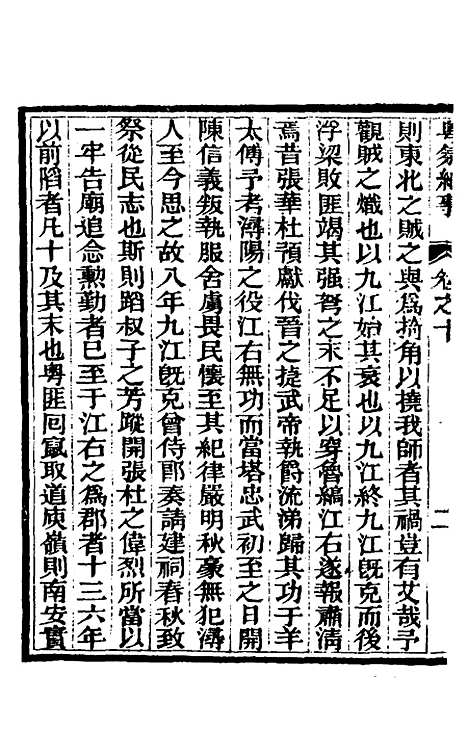 粵氛紀事 卷之十 二
則東北之賊之與爲掎角以撓我師者其禍豈有艾哉予
觀賊之熾也以九江始其衰也以九江終九江旣克而後
浮梁敗匪竭其强弩之末不足以穿魯縞江右遂報肅淸
焉昔張華杜預獻伐晉之捷武帝執爵流涕歸其功于羊
太傅予考潯陽之役江右無功而當塔忠武初至之日開
陳信義叛執服舍虜畏民懷至其紀律嚴明秋豪無犯潯
人至今思之故八年九江旣克曾侍郞奏請建祠春秋致
祭從民志也斯則蹈叔子之芳蹤開張杜之偉烈所當以
一牢告廟追念勲勤者已至于江右之爲郡者十三六年
以前陷者凡十及其末也粤匪囘竄取道庾嶺則南安實